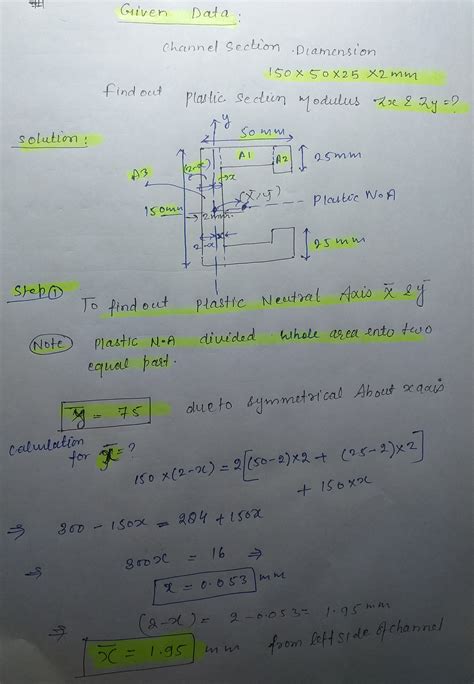 Given Data:
Channel Section Diamension
150 x 50 x 25 x 2 mm
Find out Plastic Section Modulus Zx & Zy = ?
Solution:
y
50 mm
(2-x)
A1
A2
25 mm
A3
x
(x̄, ȳ)
Plastic N.A
150mm
2mm
2-x
x
25 mm
Step ① To find out Plastic Neutral Axis x̄ & ȳ
Note Plastic N.A divided whole area into two
equal part.
ȳ = 75 due to symmetrical About x axis
Calculation
for x̄ = ?
150 x (2-x) = 2[(50-2)x2 + (25-2)x2]
+ 150 x x
⇒ 300 - 150x = 284 + 150x
⇒ 300x = 16 ⇒
x = 0.053 mm
⇒ (2-x) = 2-0.053 = 1.95 mm
x̄ = 1.95 mm from left side of channel